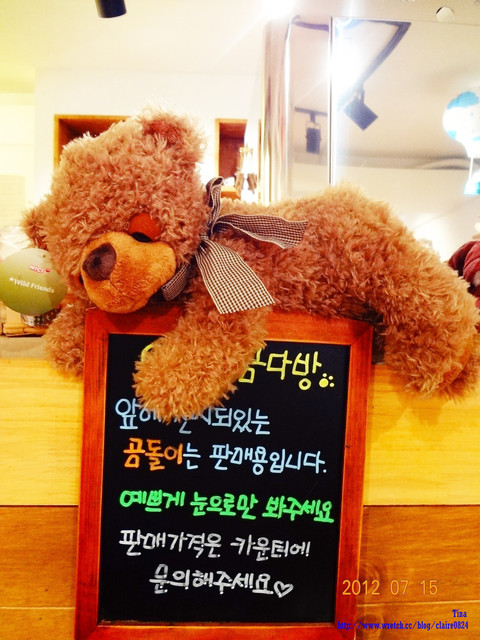 곰다방
앞에 되있는
곰돌이는 판매용입니다.
예쁘게 눈으로만 봐주세요
판매가격은 카운터에
문의해주세요♡
Wild Friends
2012 07 15
Tina
http://www.wretch.cc/blog/claire0824